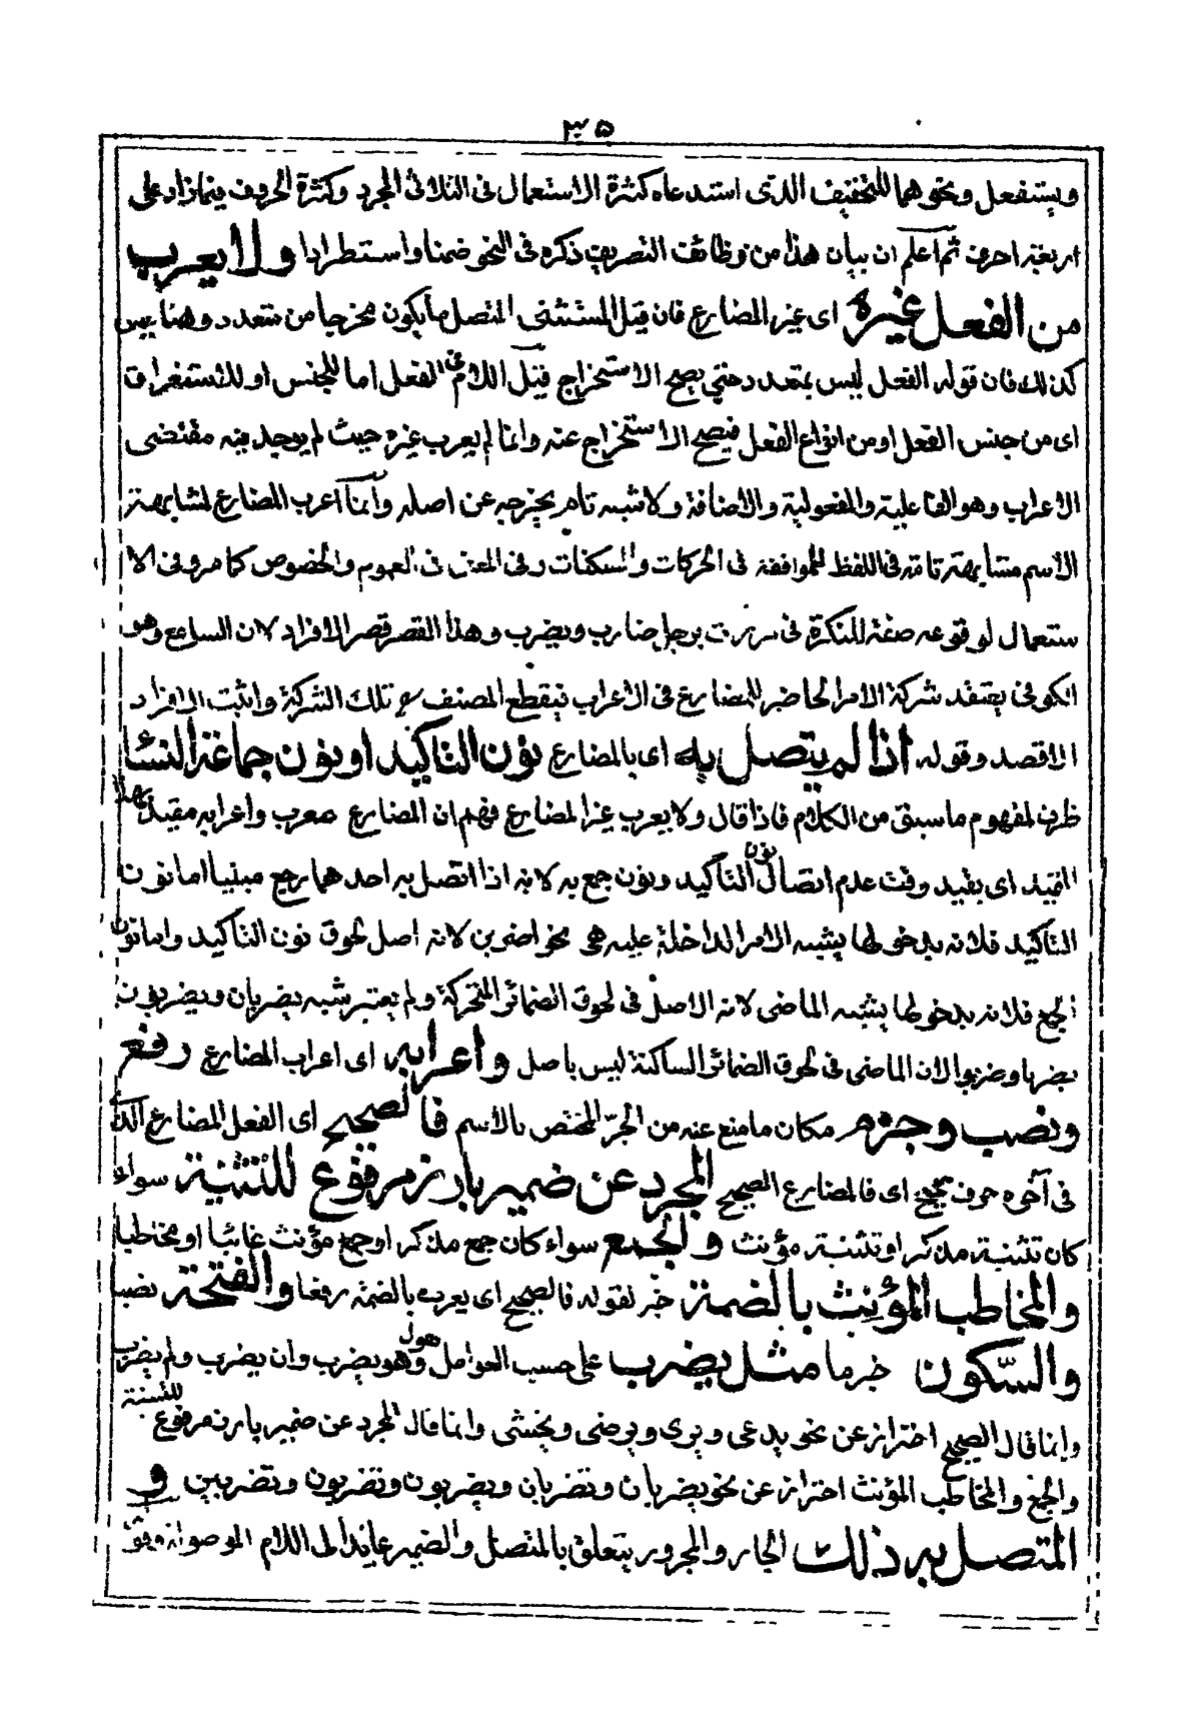 ٣٥
ويستفعل ونحوهما للتخفيف الذى استدعاه كثرة الاستعمال فى الثلاثى المجرد وكثرة الحروف فيما زاد على
اربعة احرف ثم اعلم ان بيان هذا من وظائف التصريف ذكره فى النحو ضمنا واستطرادا ولا يعرب
من الفعل غيره اى غير المضارع فان قيل المستثنى المتصل ما يكون مخرجا من متعدد وههنا ليس
كذلك فان قوله الفعل ليس بمتعدد حتى يصح الاستخراج قيل اللام فى الفعل اما للجنس او للاستغراق
اى من جنس الفعل او من انواع الفعل فيصح الاستخراج عنه وانما لم يعرب غيره حيث لم يوجد فيه مقتضى
الاعراب وهو الفاعلية والمفعولية والاضافة ولا شبه تام يخرجه عن اصله وانما اعرب المضارع لمشابهته
الاسم مشابهة تامة فى اللفظ للموافقة فى الحركات والسكنات وفى المعنى فى العموم والخصوص كما مر وفى الا
ستعمال لوقوعه صفة للنكرة فى مررت برجل ضارب ويضرب وهذا القصر قصر الافراد لان السامع وهو
الكوفى يعتقد شركة الامر الحاضر للمضارع فى الاعراب فيقطع المصنف رح تلك الشركة واثبت الافراد
الاقصد وقوله اذا لم يتصل به اى بالمضارع نون التاكيد او نون جماعة النساء
ظرف لمفهوم ما سبق من الكلام فاذا قال ولا يعرب غير المضارع فهم ان المضارع معرب واعرابه مقيد بهذا
القيد اى بقيد وقت عدم اتصال نون التاكيد ونون جمع به لانه اذا اتصل به احدهما رجع مبنيا اما نون
التاكيد فلانه بدخولها يشبه الامر الداخلة عليه هى نحو اضربن لانه اصل لحوق نون التاكيد واما نون
الجمع فلانه بدخولها يشبه الماضى لانه الاصل فى لحوق الضمائر المتحركة ولم يعتبر شبه يضربان ويضربون
بضربا وضربوا لان الماضى فى لحوق الضمائر الساكنة ليس باصل واعرابه اى اعراب المضارع رفع
ونصب وجزم مكان ما منع عنه من الجر المختص بالاسم فالصحيح اى الفعل المضارع الذى
فى آخره حرف صحيح اى فالمضارع الصحيح المجرد عن ضمير بارز مرفوع للتثنية سواء
كان تثنية مذكر او تثنية مؤنث والجمع سواء كان جمع مذكر او جمع مؤنث غائبا او مخاطبا
والمخاطب المؤنث بالضمة خبر لقوله فالصحيح اى يعرب بالضمة رفعا والفتحة نصبا
والسكون جزما مثل يضرب على حسب العوامل نحو هو يضرب وان يضرب ولم يضرب
وانما قال الصحيح احتراز عن نحو يدعى ويرى ويرضى ويخشى وانما قال المجرد عن ضمير بارز مرفوع للتثنية
والجمع والمخاطب المؤنث احتراز عن نحو يضربان وتضربان ويضربون وتضربون وتضربين و
المتصل به ذلك الجار والمجرور يتعلق بالمتصل والضمير عائد الى اللام الموصولة